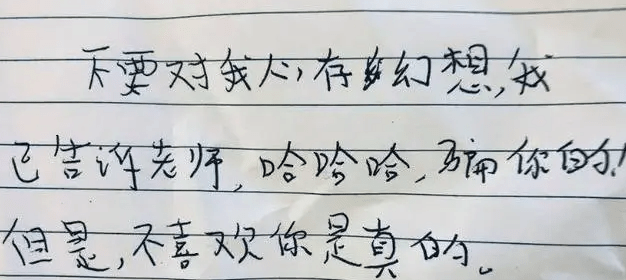 不要对我心存幻想,我
已告诉老师,哈哈哈,骗你的!
但是,不喜欢你是真的。